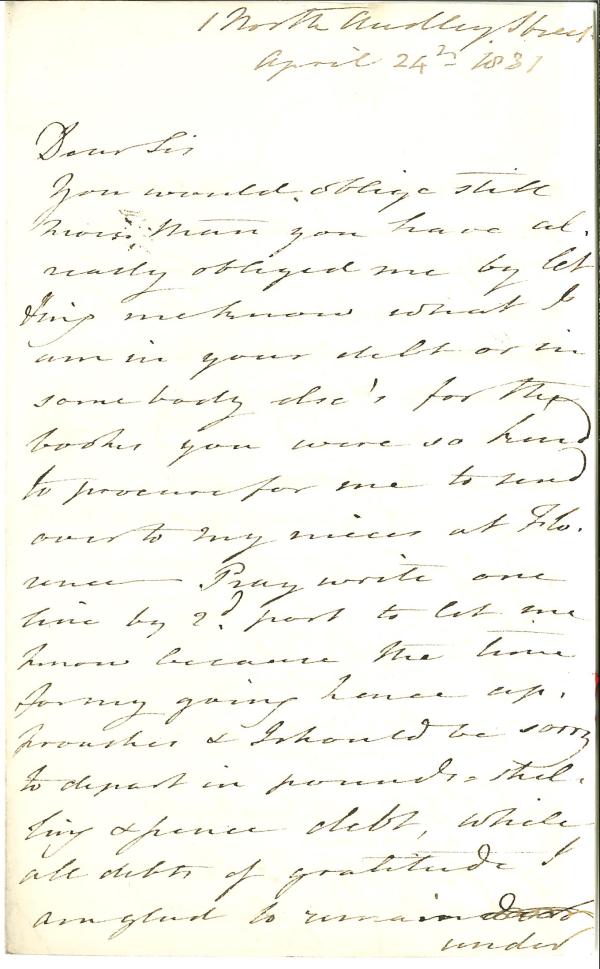 1 North Audley Street
April 24th 1831
Dear Sir
You would oblige still
more than you have al-
ready obliged me by let
ting me know what I
am in your debt or in
some body else's for the
books you were so kind
to procure for me to send
over to my nieces at Flo-
rence — Pray write one
line by 2d post to let me
know because the time
for my going hence ap-
proaches & I should be sorry
to depart in pounds-shil-
ling & pence debt, while
all debts of gratitude I
am glad to remain
under